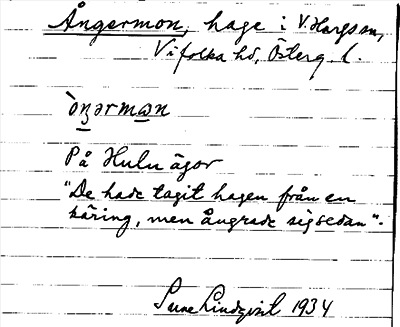 Ångermon, hage i V. Hargs sn,
Vifolka hd, Österg. l.
òŋərmɷn
På Hulu ägor
"De hade tagit hagen från en
käring, men ångrade sig sedan".
Sune Lindqvist 1934